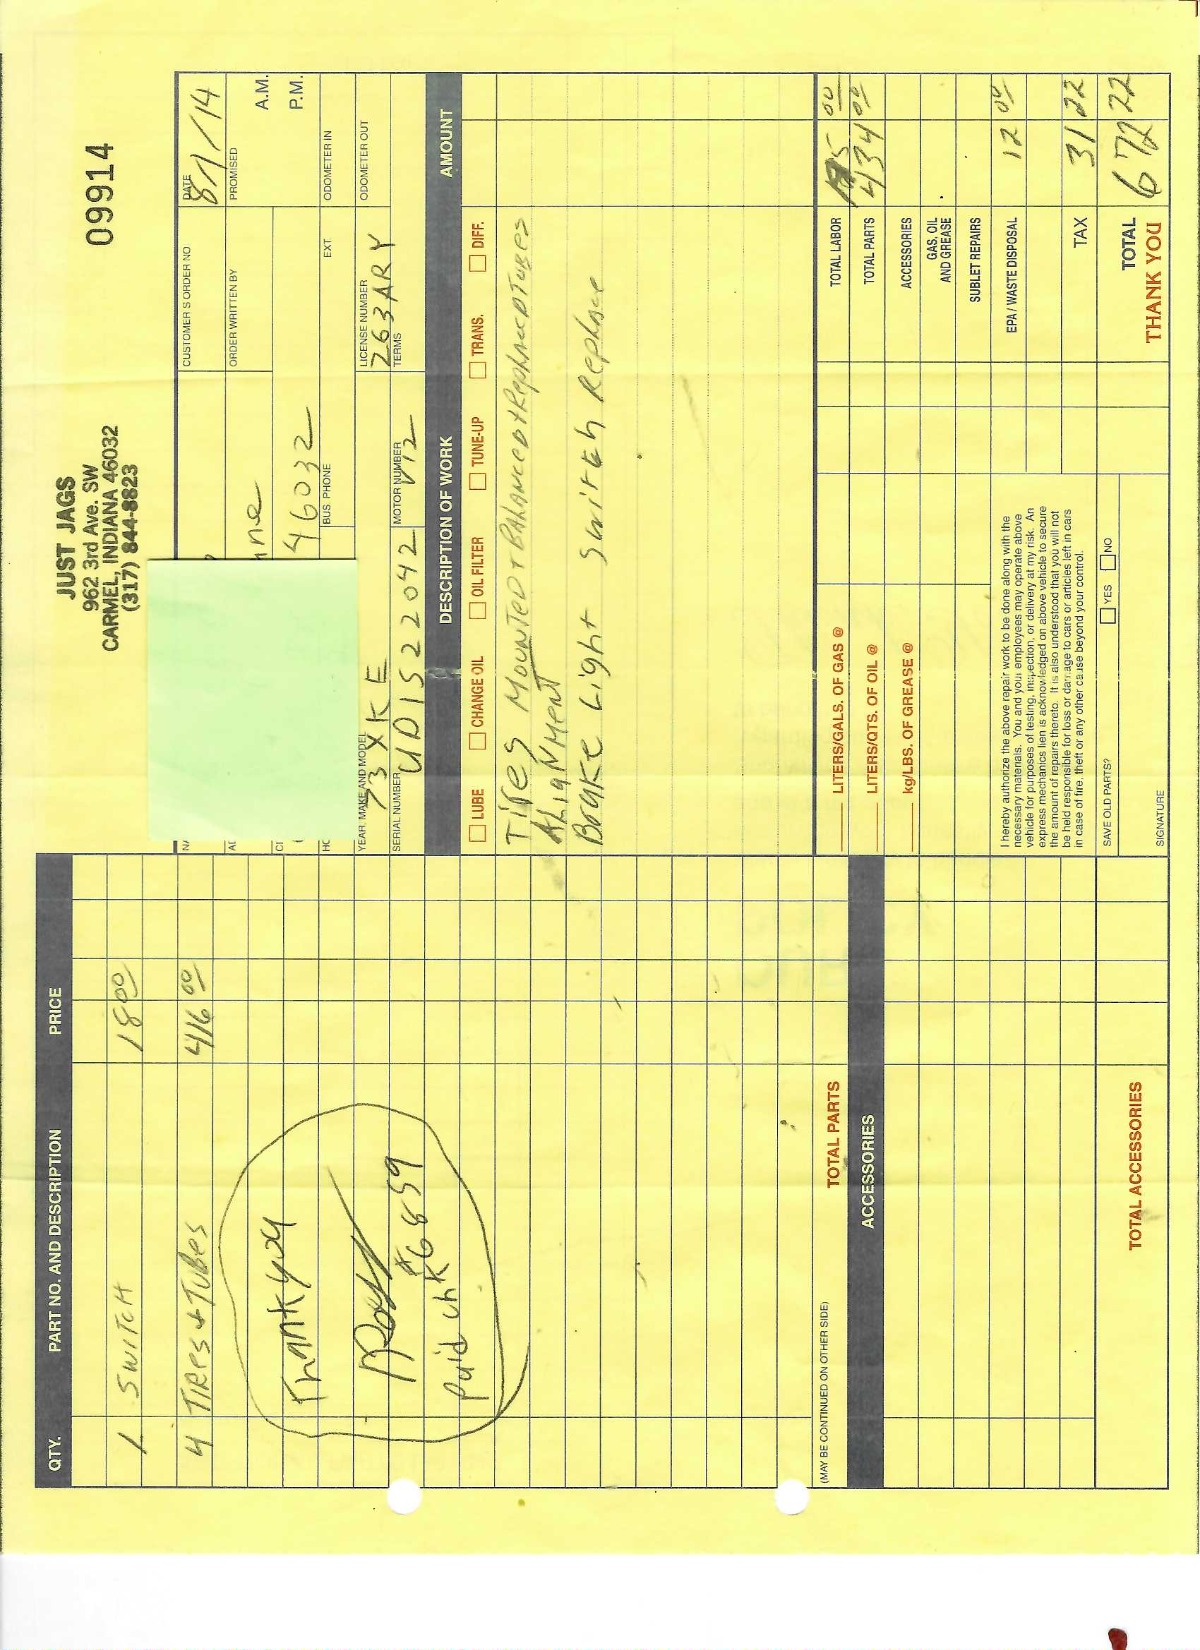 JUST JAGS
962 3rd Ave. SW
CARMEL, INDIANA 46032
(317) 844-8823
09914
QTY. PART NO. AND DESCRIPTION PRICE
1 SWITCH 18 00
4 TIRES & TUBES 416 00
Thank you
Paid chk #6859
(MAY BE CONTINUED ON OTHER SIDE) TOTAL PARTS
ACCESSORIES
TOTAL ACCESSORIES
CUSTOMER'S ORDER NO DATE 8/1/14
ORDER WRITTEN BY PROMISED A.M.
P.M.
46032
BUS PHONE EXT ODOMETER IN
YEAR, MAKE AND MODEL 73 XKE LICENSE NUMBER 263ARY ODOMETER OUT
SERIAL NUMBER UD1S22042 MOTOR NUMBER V12 TERMS
DESCRIPTION OF WORK AMOUNT
LUBE CHANGE OIL OIL FILTER TUNE-UP TRANS. DIFF.
Tires Mounted & Balanced & Replaced Tubes
Alignment
Brake Light Switch Replace
LITERS/GALS. OF GAS @ TOTAL LABOR 00
LITERS/QTS. OF OIL @ TOTAL PARTS 434 00
kg/LBS. OF GREASE @ ACCESSORIES
GAS, OIL AND GREASE
SUBLET REPAIRS
EPA / WASTE DISPOSAL 12 00
TAX 31 22
TOTAL 672 22
THANK YOU
I hereby authorize the above repair work to be done along with the
necessary materials. You and your employees may operate above
vehicle for purposes of testing, inspection, or delivery at my risk. An
express mechanics lien is acknowledged on above vehicle to secure
the amount of repairs thereto. It is also understood that you will not
be held responsible for loss or damage to cars or articles left in cars
in case of fire, theft or any other cause beyond your control.
SAVE OLD PARTS? YES NO
SIGNATURE